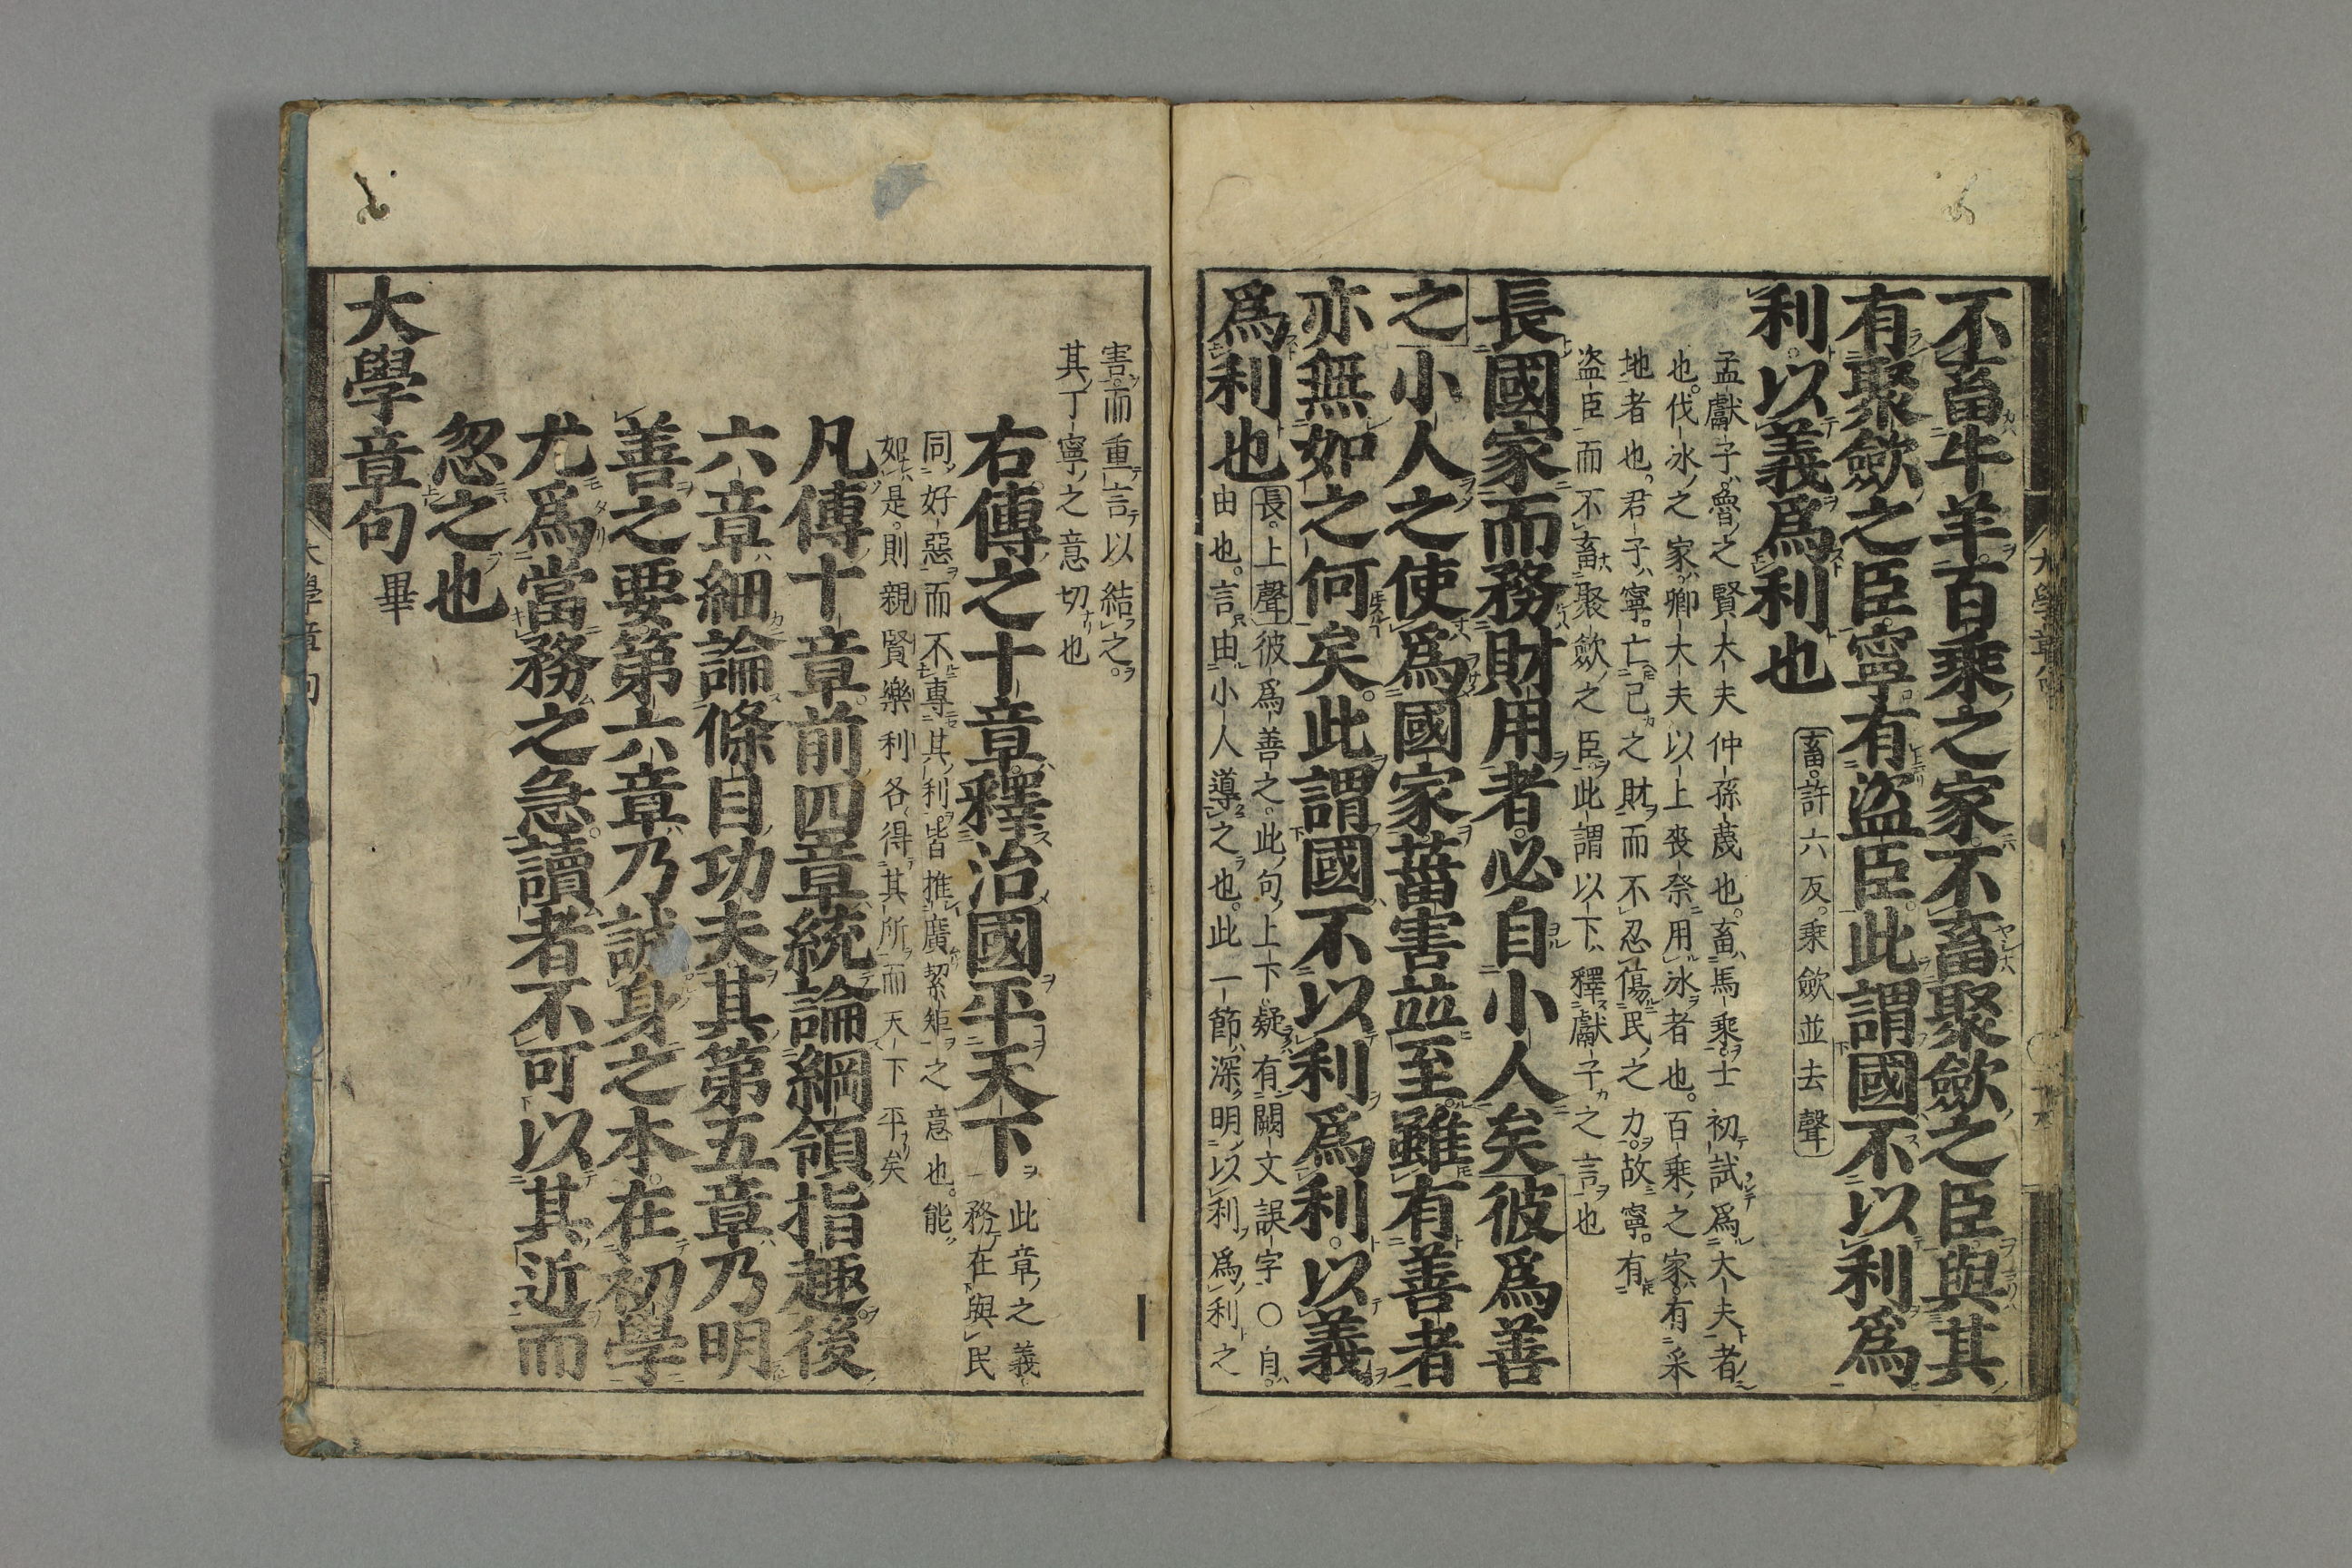 不畜牛羊百乘之家不畜聚斂之臣與其
有聚斂之臣寧有盜臣此謂國不以利爲
利以義爲利也
畜許六反乘斂並去聲
孟獻子魯之賢大夫仲孫蔑也畜馬乘士初試爲大夫者
也伐冰之家卿大夫以上喪祭用冰者也百乘之家有采
地者也君子寧亡己之財而不忍傷民之力故寧有
盜臣而不畜聚斂之臣此謂以下釋獻子之言也
長國家而務財用者必自小人矣彼爲善
之小人之使爲國家菑害並至雖有善者
亦無如之何矣此謂國不以利爲利以義
爲利也
長上聲彼爲善之此句上下疑有闕文誤字○自
由也言由小人導之也此一節深明以利爲利之
害而重言以結之
其丁寧之意切也
右傳之十章釋治國平天下
此章之義
務在與民
同好惡而不專其利皆推廣絜矩之意也能
如是則親賢樂利各得其所而天下平矣
凡傳十章前四章統論綱領指趣後
六章細論條目功夫其第五章乃明
善之要第六章乃誠身之本在初學
尤爲當務之急讀者不可以其近而
忽之也
大學章句畢
大學章句